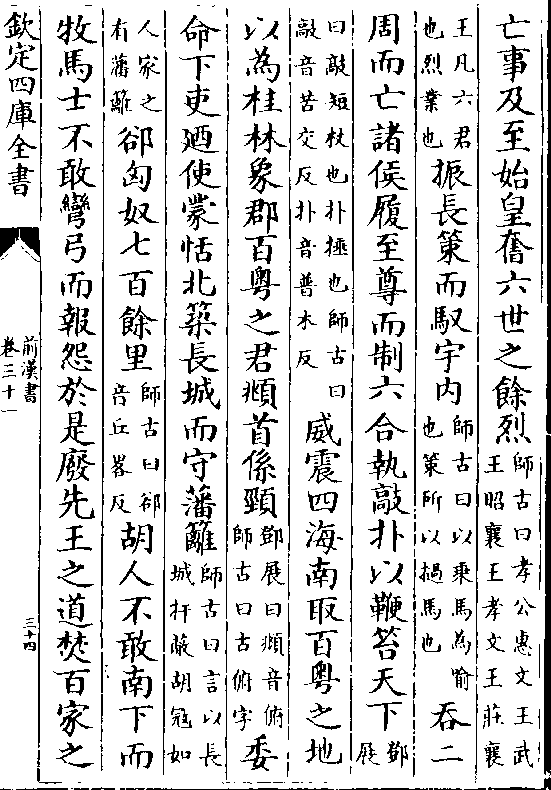 亡事及至始皇奮六世之餘烈師古曰孝公惠文王武王昭襄王孝文王莊襄
王凡六君也烈業也振長策而馭宇内師古曰以乗馬為喻也策所以撾馬也吞二
周而亡諸侯履至尊而制六合執敲扑以鞭笞天下鄧展
曰敲短杖也扑捶也師古曰敲音苦交反扑音普木反威震四海南取百粤之地
以為桂林象郡百粤之君頫首係頸鄧展曰頫音俯師古曰古俯字委
命下吏廼使蒙恬北築長城而守藩籬師古曰言以長城扞蔽胡冦如
人家之有藩籬郤匈奴七百餘里師古曰郤音丘畧反胡人不敢南下而
牧馬士不敢彎弓而報怨於是廢先王之道焚百家之
欽定四庫全書
前漢書
卷三十一
三十四